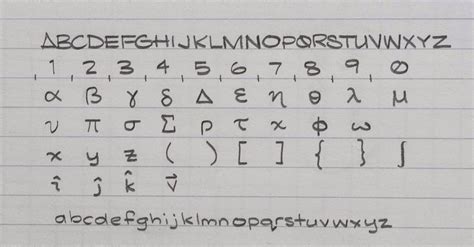 ABCDEFGHIJKLMNOPQRSTUVWXYZ
, 1 , 2 , 3 , 4 , 5 , 6 , 7 , 8 , 9 , 0
α β γ δ Δ ε η θ λ μ
ν π σ Σ ρ τ x φ ω
x y z ( ) [ ] { } ∫
î ĵ k̂ v⃗
abcdefghijklmnopqrstuvwxyz